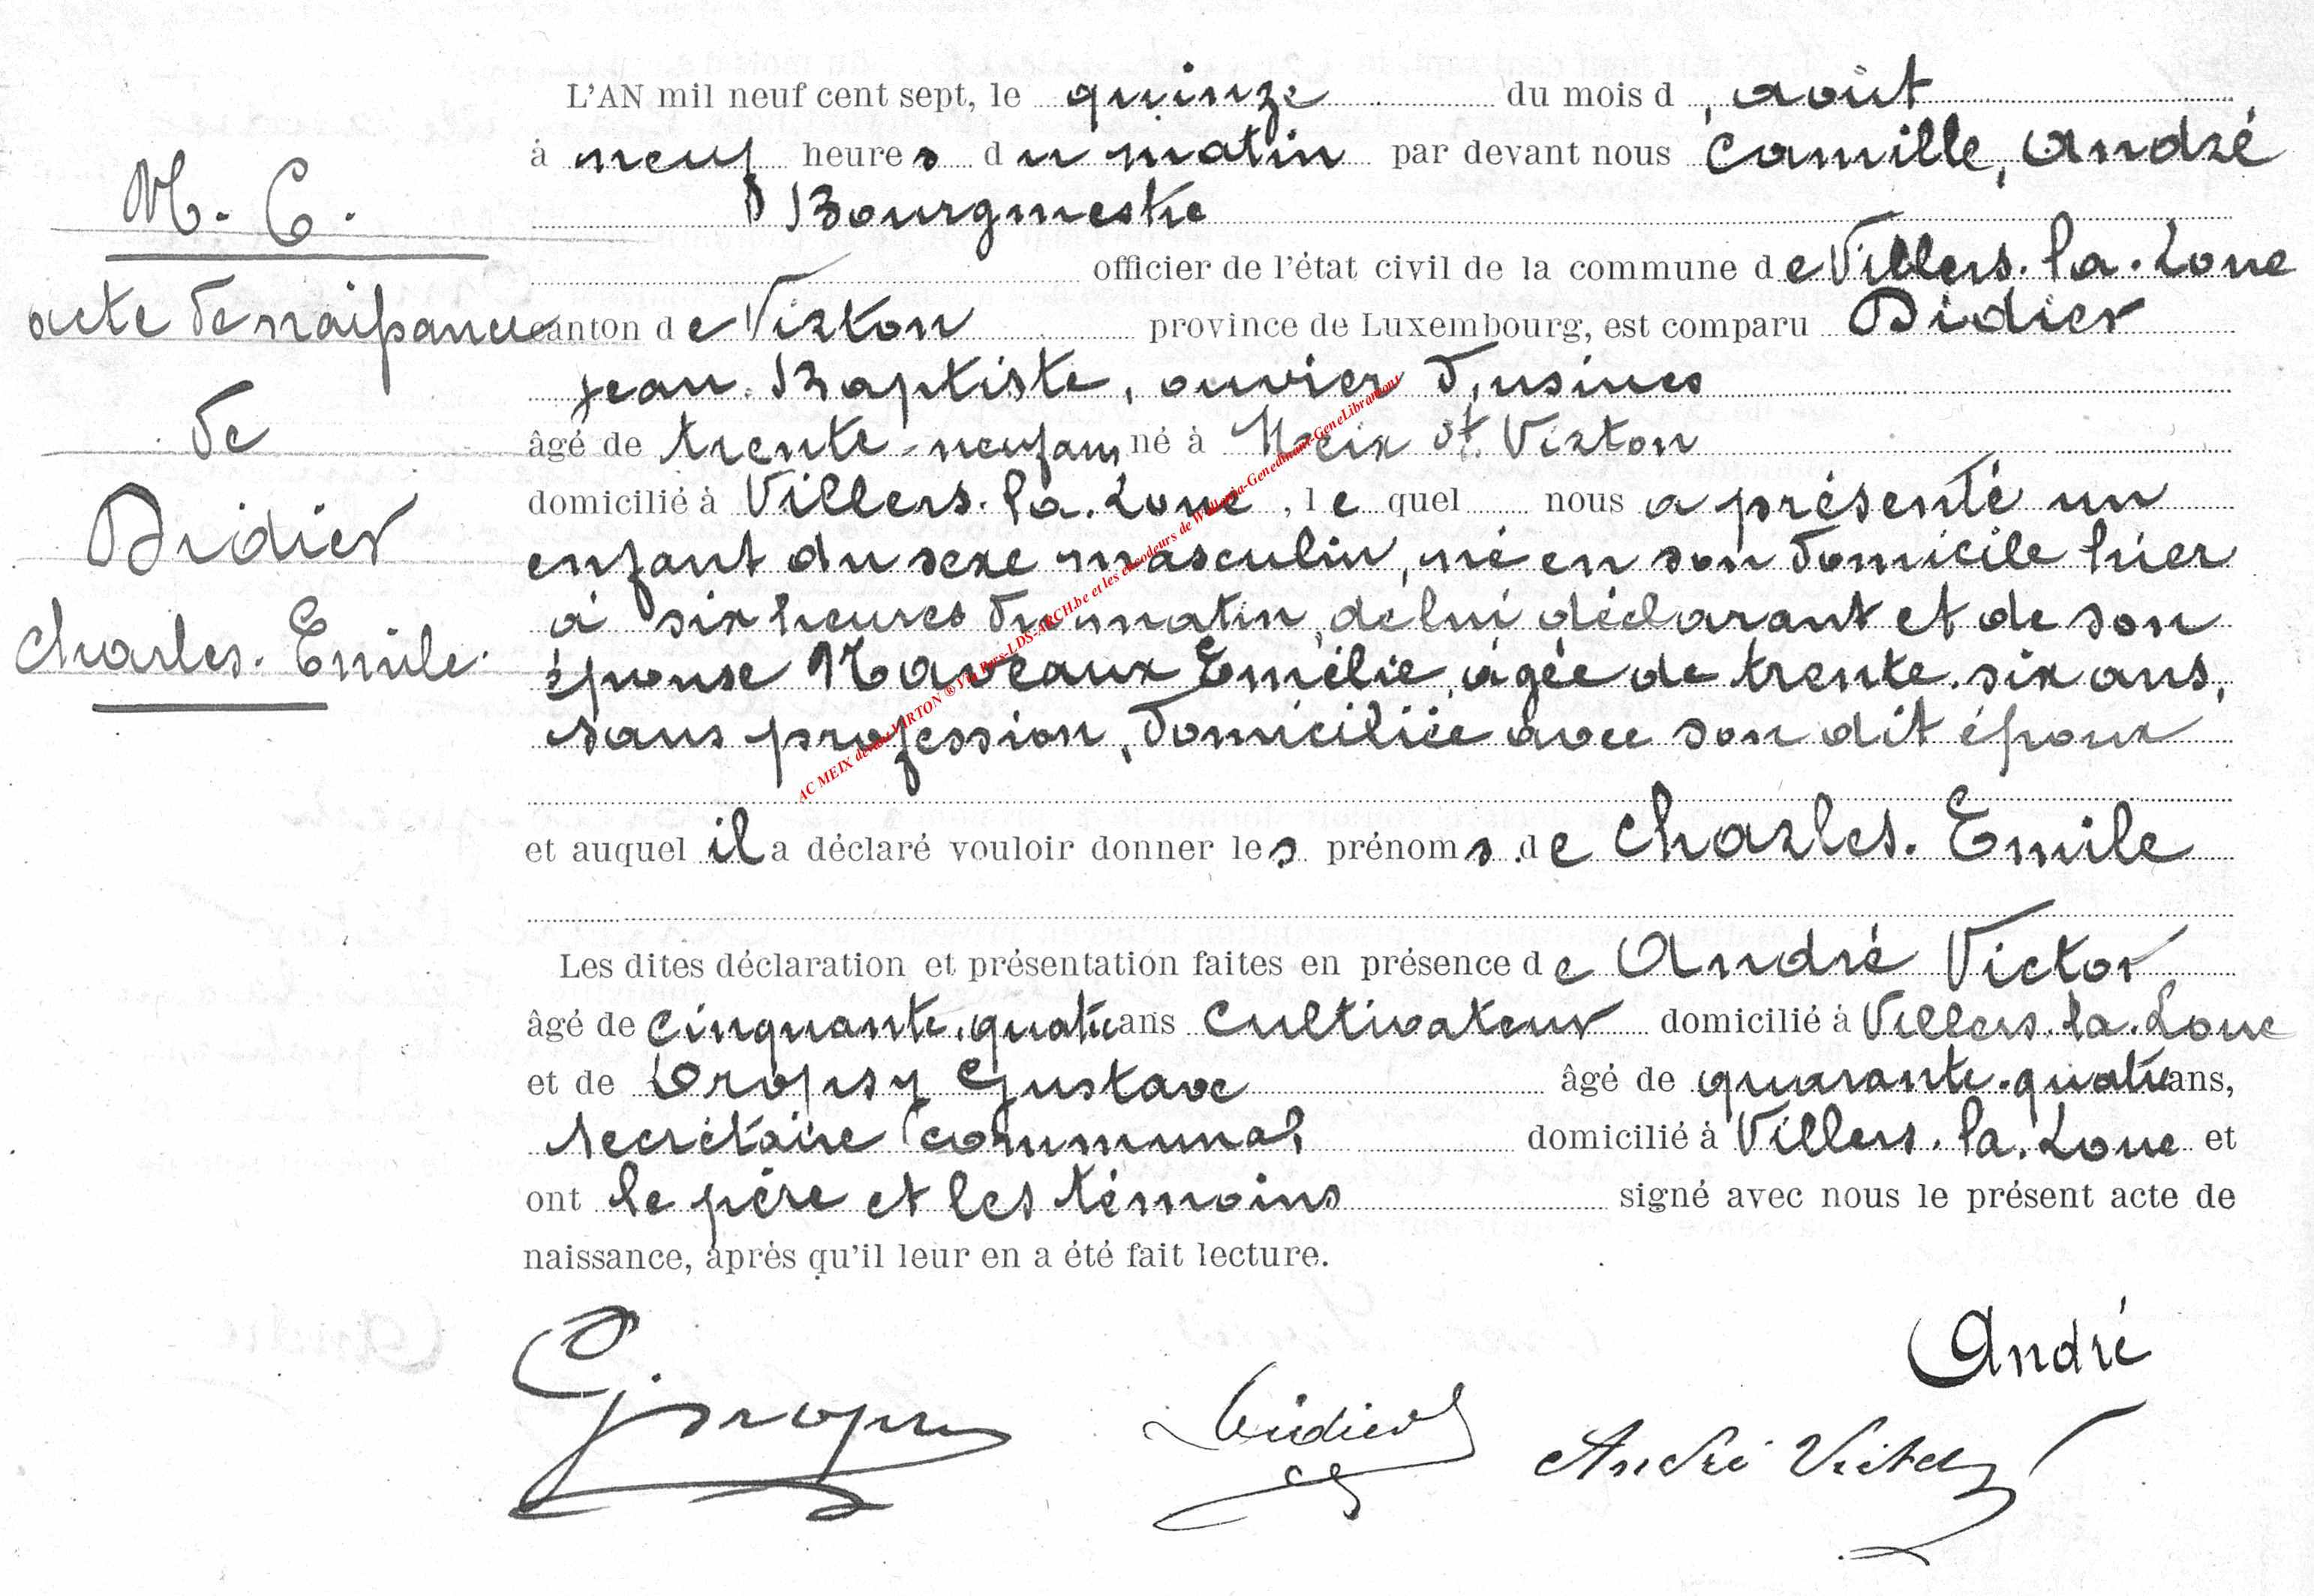 L'AN mil neuf cent sept, le quinze du mois d'août
à neuf heures du matin par devant nous Camille, André
Bourgmestre
officier de l'état civil de la commune de Villers-la-Loue
canton de Virton province de Luxembourg, est comparu Didier
Jean-Baptiste, ouvrier d'usines
âgé de trente-neuf ans né à Meix dt Virton
domicilié à Villers-la-Loue, lequel nous a présenté un
enfant du sexe masculin, né en son domicile hier
à six heures du matin, de lui déclarant et de son
épouse Maveaux Emélie, âgée de trente-six ans,
sans profession, domiciliée avec son dit époux
et auquel il a déclaré vouloir donner les prénoms de Charles-Emile
Les dites déclaration et présentation faites en présence de André Victor
âgé de cinquante-quatre ans cultivateur domicilié à Villers-la-Loue
et de Dropsy Gustave âgé de quarante-quatre ans,
secrétaire communal domicilié à Villers-la-Loue et
ont le père et les témoins signé avec nous le présent acte de
naissance, après qu'il leur en a été fait lecture.
N. C.
acte de naissance
de
Didier
Charles-Emile
AC MEIX devant VIRTON ® Via Fars-LDS-ARCH.be et les encodeurs de Wallonia-Genedinant-GeneLibramont
André
G. Dropsy
Didier
André Victor